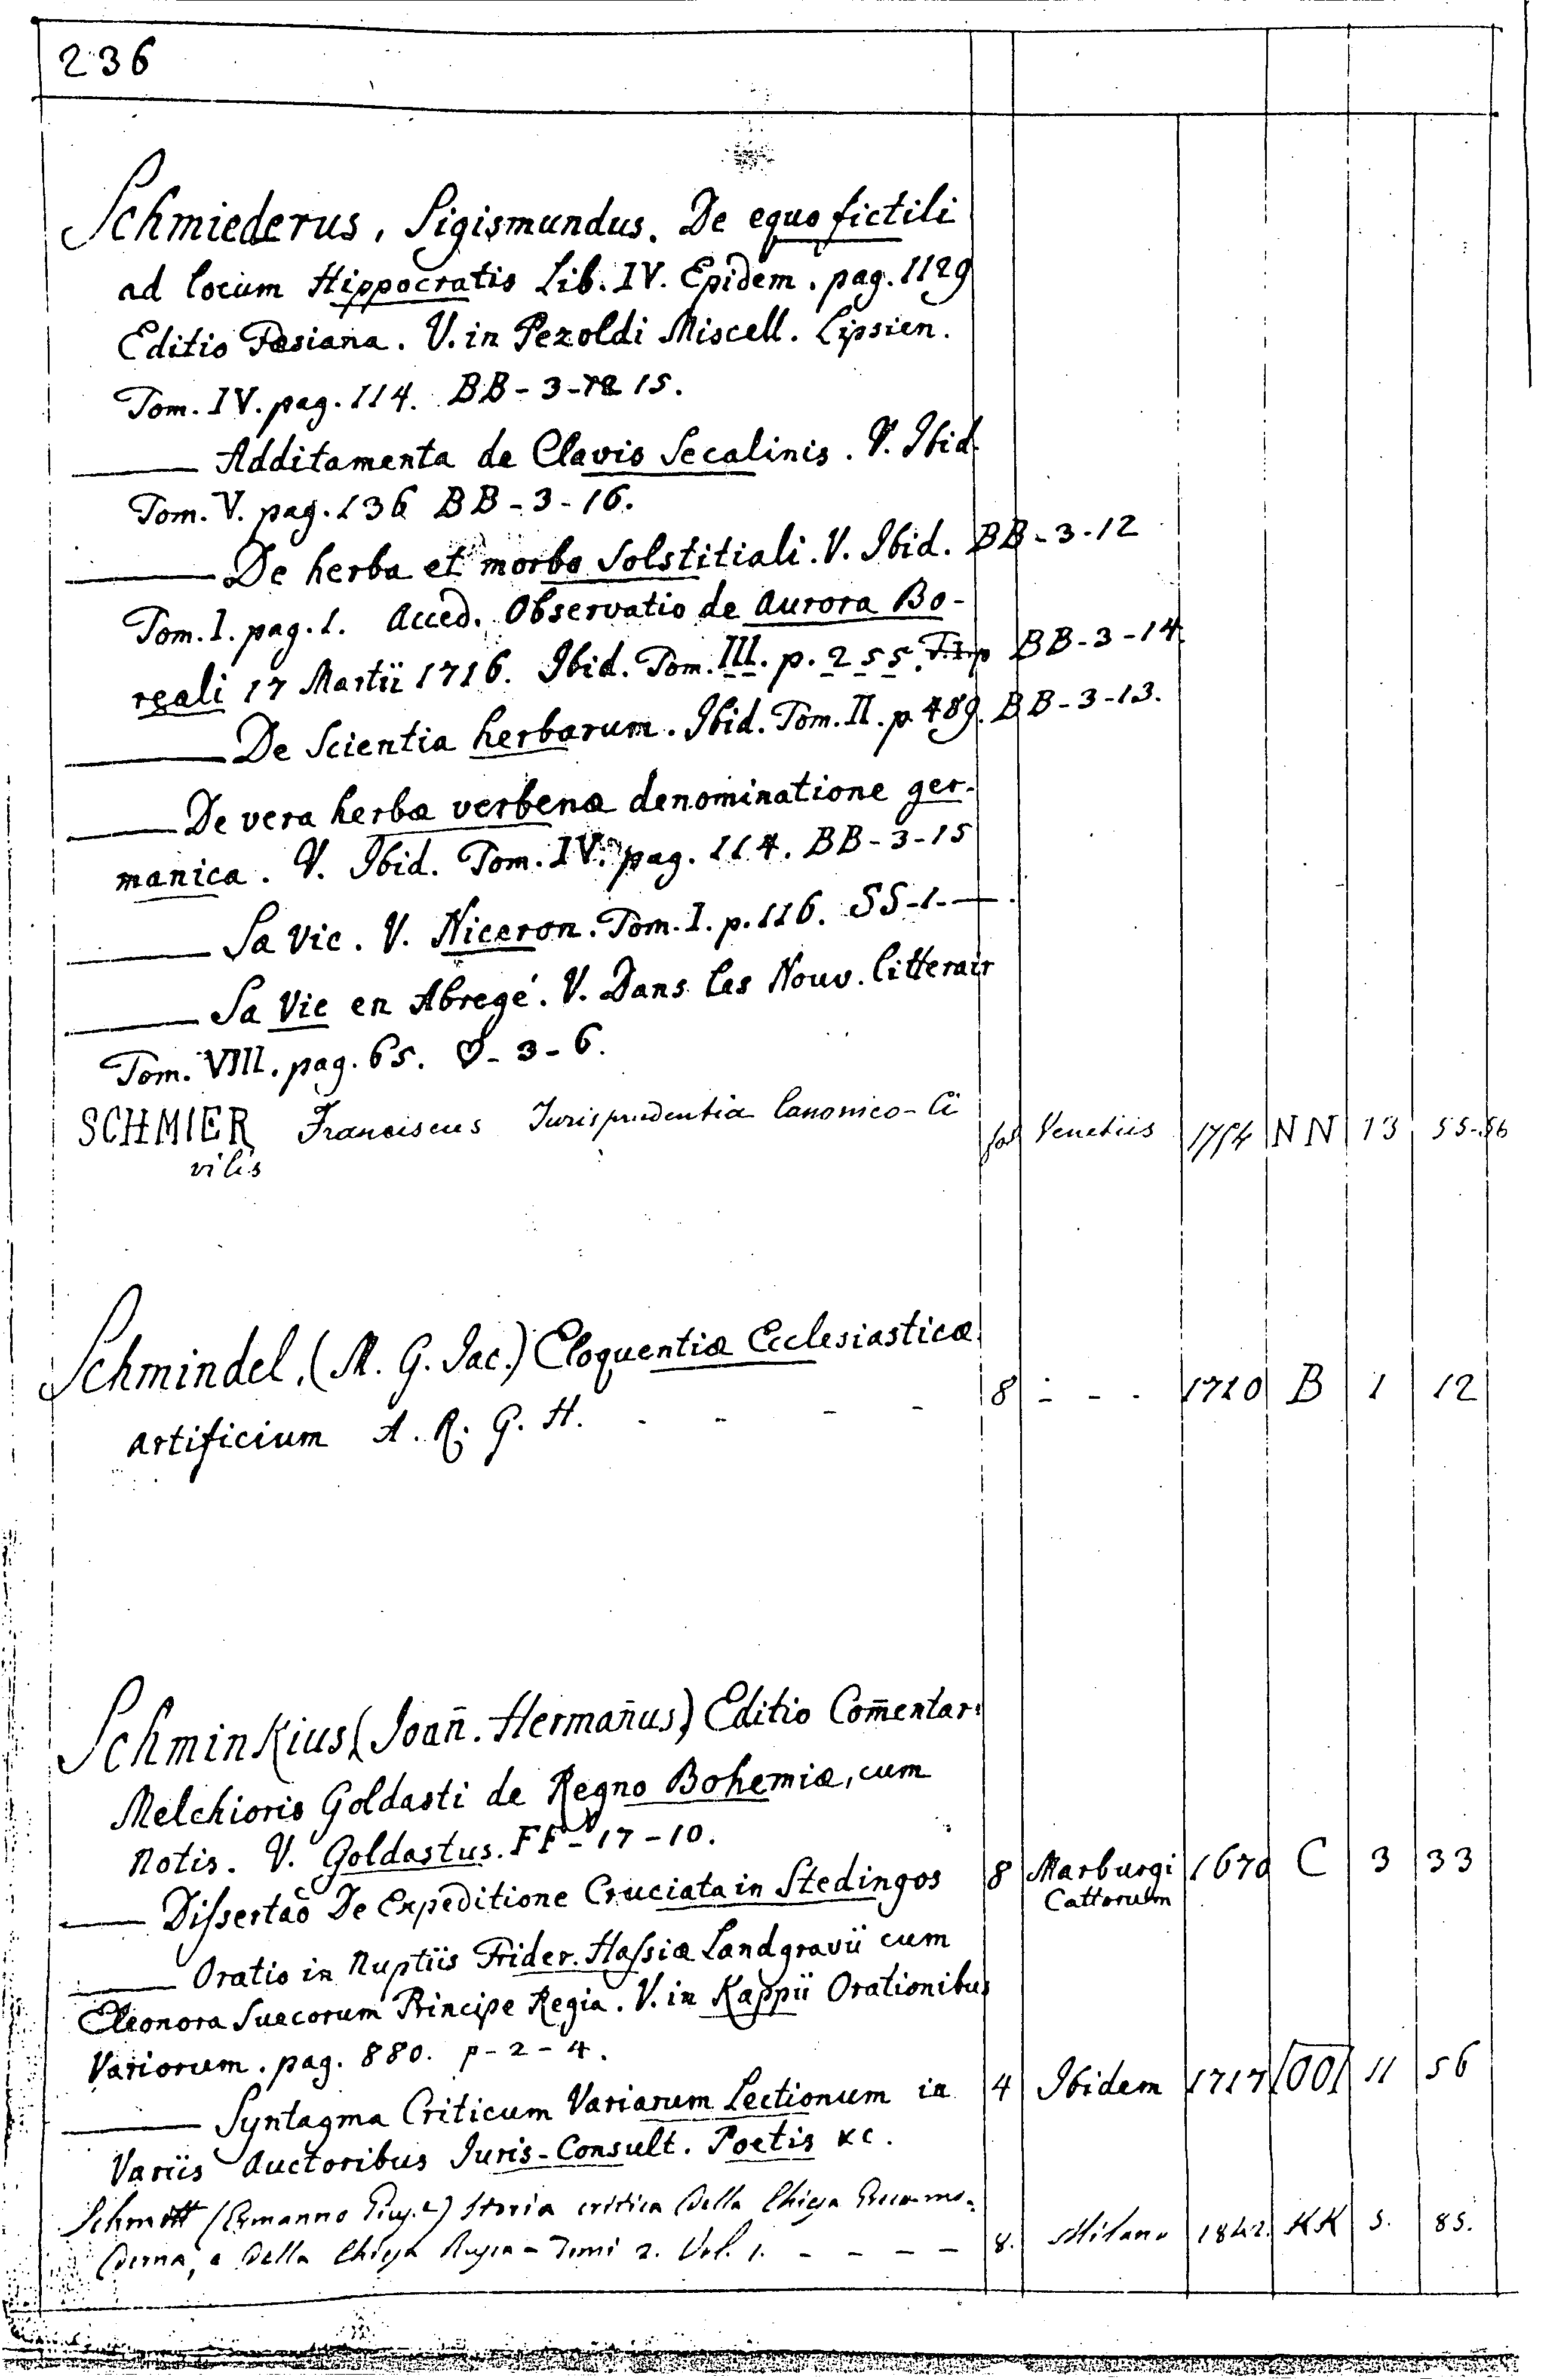 236
Schmiederus, Sigismundus. De equo fictili
ad locum Hippocratis Lib. IV. Epidem. pag. 1129
Editio Fæsiana. V. in Pezoldi Miscell. Lipsien.
Tom. IV. pag. 114. BB-3-15.
—— Additamenta de Clavis Secalinis. V. Ibid.
Tom. V. pag. 136 BB-3-16.
—— De herba et morbo Solstitiali. V. Ibid. BB-3-12
Tom. I. pag. 1. Acced. Observatio de Aurora Bo-
reali 17 Martii 1716. Ibid. Tom. III. p. 255. BB-3-14.
—— De Scientia herbarum. Ibid. Tom. II. p. 489. BB-3-13.
—— De vera herbæ verbenæ denominatione ger-
manica. V. Ibid. Tom. IV. pag. 114. BB-3-15
—— Sa Vie. V. Niceron. Tom. I. p. 116. SS-1-—.
—— Sa Vie en Abregé. V. Dans les Nouv. litterair
Tom. VIII. pag. 65. ♡-3-6.
SCHMIER Franciscus Jurisprudentia Canonico-Ci fol Venetiis 1754 NN 13 55-56
vilis
Schmindel, (M. G. Jac.) Eloquentiæ Ecclesiasticæ
artificium A. R. G. H. - - - - 8 - - - 1710 B 1 12
Schminkius (Joañ. Hermañus) Editio Com̃entar:
Melchioris Goldasti de Regno Bohemiæ, cum
notis. V. Goldastus. FF-17-10.
—— Dissertaõ De Expeditione Cruciata in Stedingos 8 Marburgi 1670 C 3 33
Cattorum
—— Oratio in Nuptiis Frider. Hassiæ Landgravii cum
Eleonora Suecorum Principe Regia. V. in Kappii Orationibus
Variorum. pag. 880. p-2-4.
—— Syntagma Criticum Variarum Lectionum in 4 Ibidem 1717 OO 11 56
Variis Auctoribus Juris-Consult. Poetis &c.
Schmitt (Ermanno Gius.e) Storia critica della Chiesa Greca mo-
derna, e della Chiesa Russa - Tomi 2. Vol. 1. - - - - 8. Milano 1842. KK 5. 85.